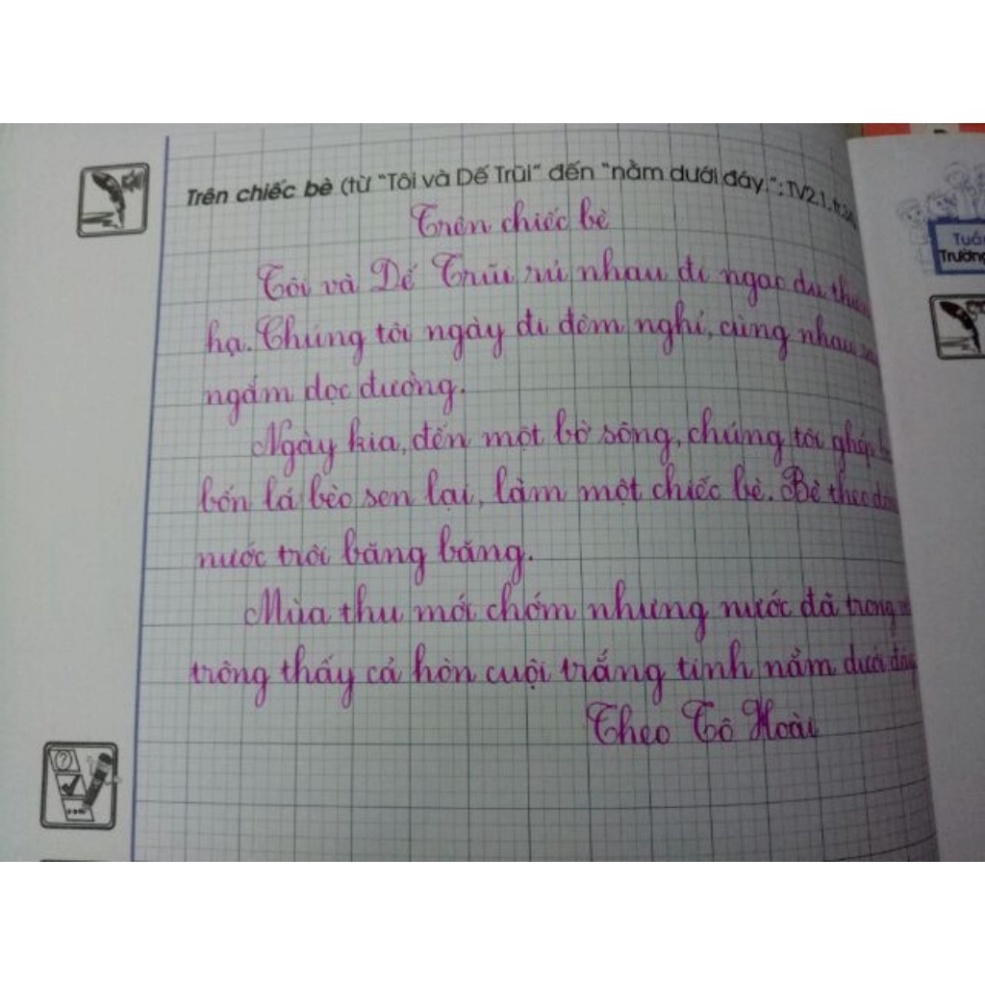 Trên chiếc bè (từ "Tôi và Dế Trũi" đến "nằm dưới đáy."; TV2.1, tr.34
Trên chiếc bè
Tôi và Dế Trũi rủ nhau đi ngao du thiên
hạ. Chúng tôi ngày đi đêm nghỉ, cùng nhau say
ngắm dọc đường.
Ngày kia, đến một bờ sông, chúng tôi ghép
bốn lá bèo sen lại, làm một chiếc bè. Bè theo dòng
nước trôi băng băng.
Mùa thu mới chớm nhưng nước đã trong
trông thấy cả hòn cuội trắng tinh nằm dưới đáy
Theo Tô Hoài
Tuần
Trường